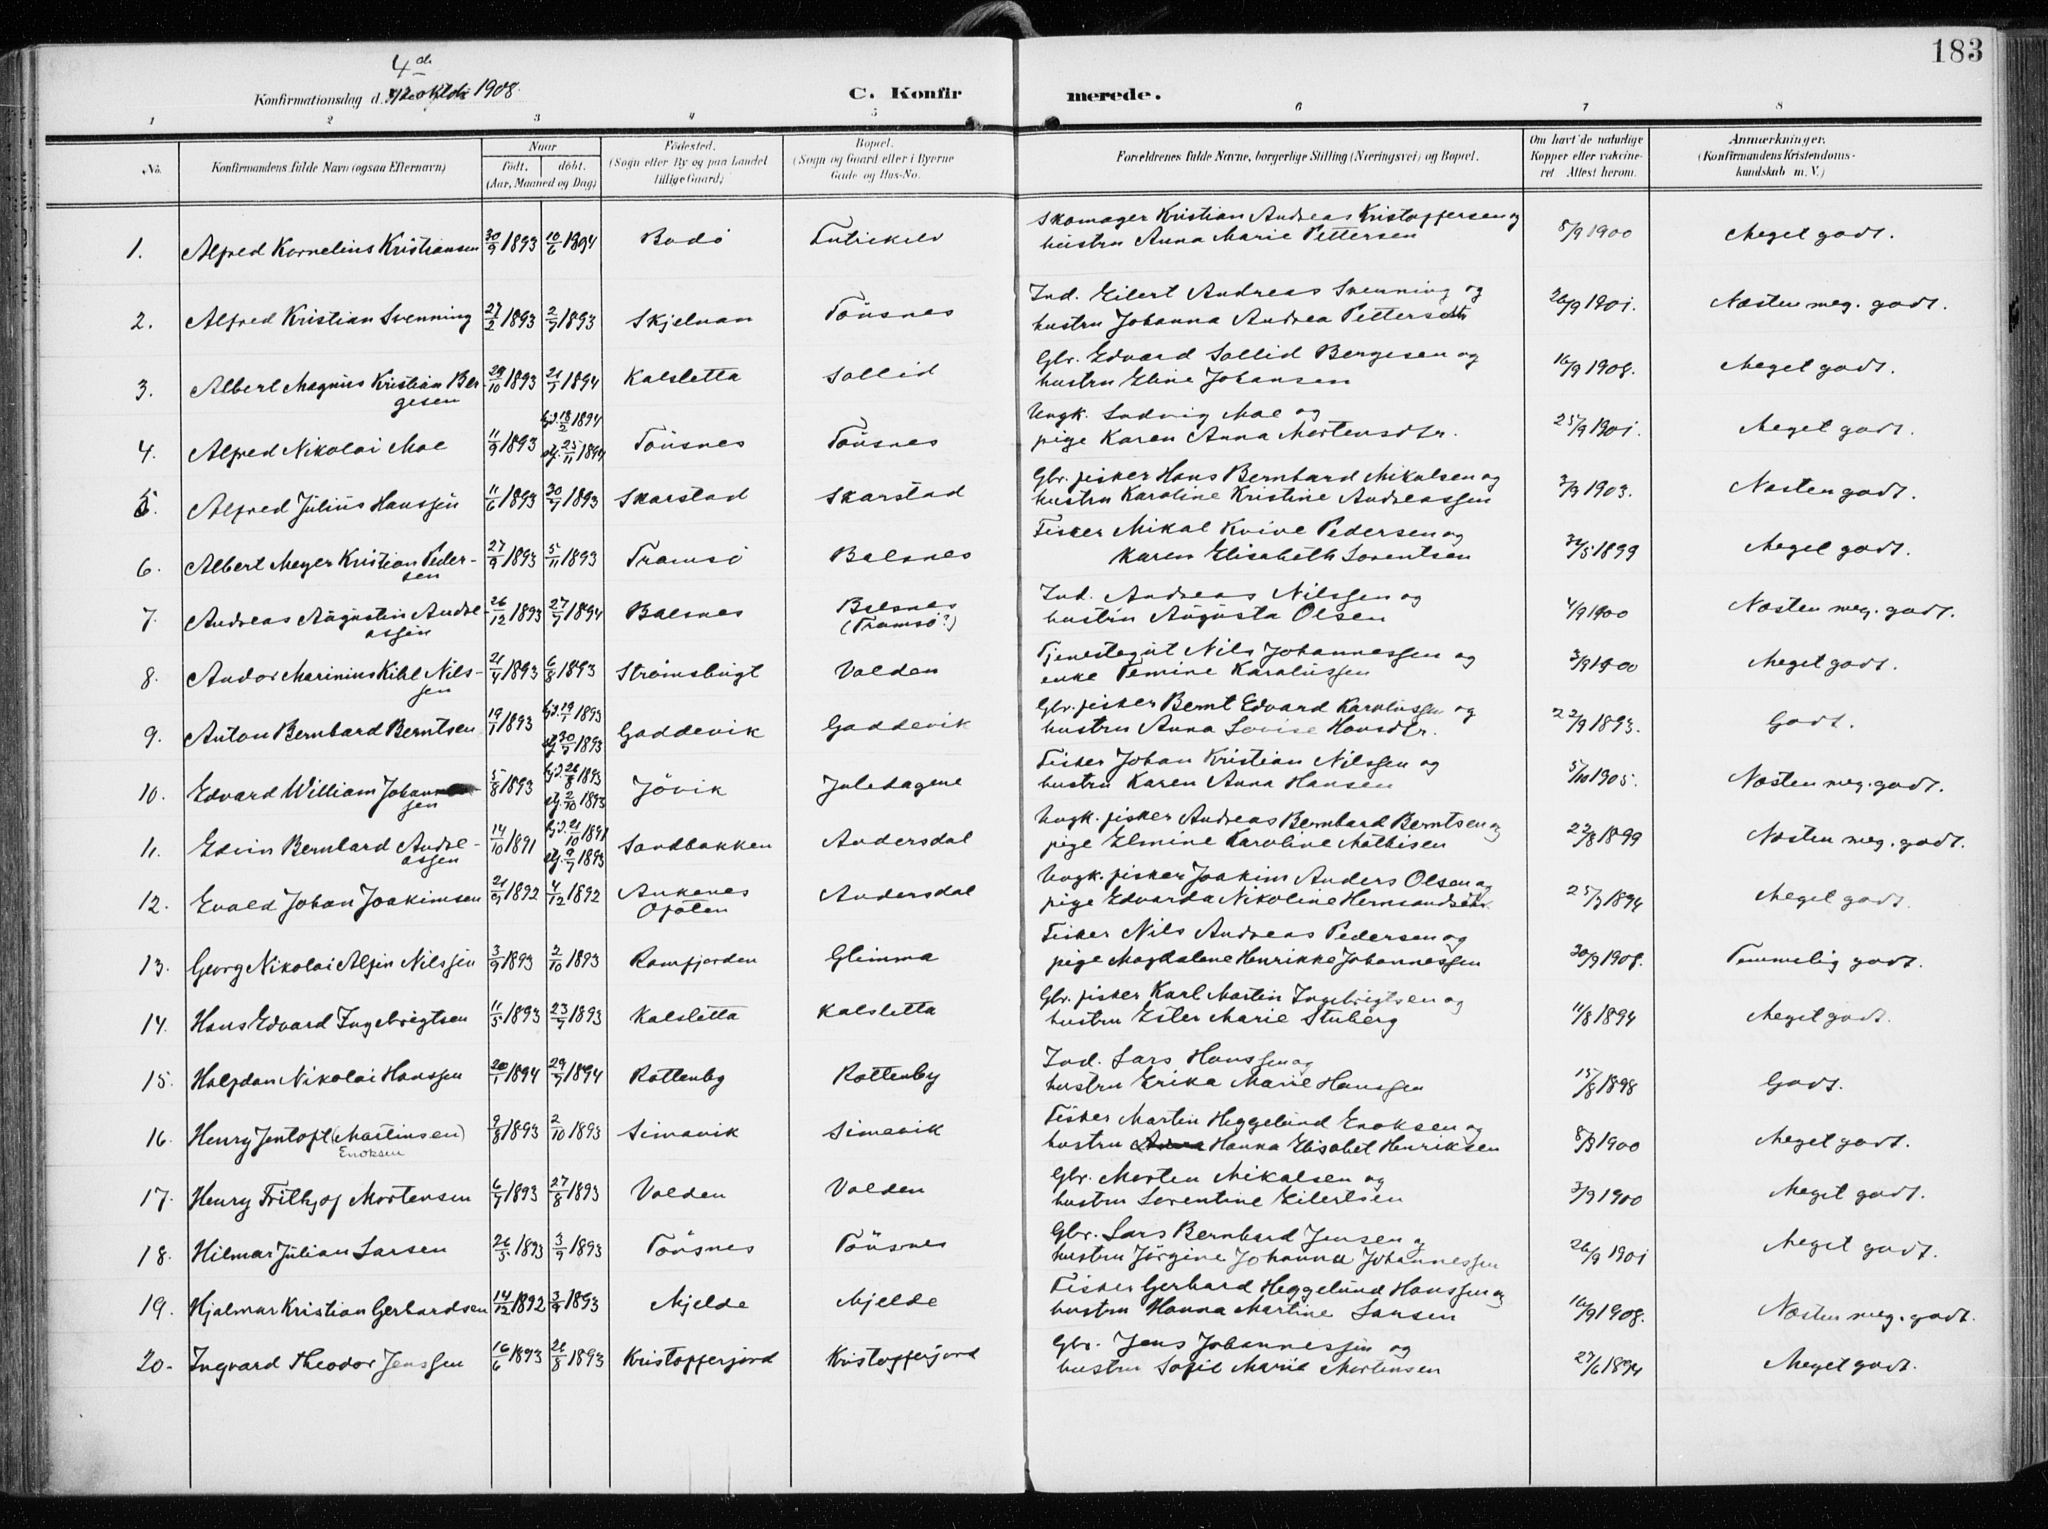 183
4de
Konfirmationsdag d. oktbr 1908.
C. Konfirmerede.
1 2 3 4 5 6 7 8
No. Konfirmandens fulde Navn (ogsaa Efternavn) Naar født, døbt. (Aar, Maaned og Dag) Fødested. (Sogn eller By og paa Landet tillige Gaard) Bopæl. (Sogn og Gaard eller i Byerne Gade og Hus-No. Forældrenes fulde Navne, borgerlige Stilling (Næringsvei) og Bopæl. Om havt de naturlige Kopper eller vakcineret Attest herom. Anmærkninger. (Konfirmandens Kristendomskundskab m. V.)
1. Alfred Kornelius Kristiansen 30/9 1893 10/6 1894 Bodö Skomager Kristian Andreas Kristoffersen og
hustru Anna Marie Pettersen 5/9 1900 Meget godt.
2. Alfred Kristian Svenning 27/2 1893 2/7 1893 Skjelnan Tönsnes Ind. Eilert Andreas Svenning og
hustru Johanna Andrea Pettersdtr 26/9 1901. Næsten meg. godt.
3. Albert Magnus Kristian Ber-
gesen 29/10 1893 21/7 1894 Kalsletta Sollid Gbr. Edvard Sollid Bergesen og
hustru Eline Johansen 16/9 1908. Meget godt.
4. Alfred Nikolai Moe 11/9 1893 hjd. 18/2 1894
stj. 25/11 1894 Tönsnes Tönsnes Ungk. Ludvig Moe og
pige Karen Anna Mortensdtr. 25/9 1901. Meget godt.
5. Alfred Julius Hanssen 11/6 1893 30/7 1893 Skarstad Skarstad Gbr. fisker Hans Bernhard Mikalsen og
hustru Karoline Kristine Andreassen 3/9 1903. Næsten godt.
6. Albert Meyer Kristian Peder-
sen 27/9 1893 5/11 1893 Tromsö Balsnes Fisker Mikal Kvive Pedersen og
Karen Elisabeth Lorentsen 1899 Meget godt.
7. Andreas Augustin Andre-
assen 26/12 1893 27/7 1894 Balsnes Balsnes
(Tromsö?) Ind. Andreas Nilssen og
hustru Augusta Olsen 4/9 1900 Næsten meg. godt.
8. Andor Marinius Kihl Nils-
sen 21/4 1893 6/8 1893 Strömsbugt Volden Tjenestegut Nils Johannessen og
enke Pernine Karolussen 3/9 1900 Meget godt.
9. Anton Bernhard Berntsen 19/1 1893 hjd. 19/1 1893
stj. 30/7 1893 Gaddevik Gaddevik Gbr. fisker Bernt Edvard Karolussen og
hustru Anna Lovise Hansdtr. 22/9 1893. Godt.
10. Edvard William Johannes-
sen 5/8 1893 hjd. 26/8 1893
stj. 2/10 1893 Jövik Juledagene Fisker Johan Kristian Nilssen og
hustru Karen Anna Hansen 5/10 1905. Næsten meg. godt.
11. Edvin Bernhard Andre-
assen 14/10 1891 hjd. 21/10 1891
stj. 9/7 1893 Sandbakken Andersdal Ungk. fisker Andreas Bernhard Berntsen og
pige Elmine Karoline Mathisen 22/8 1899 Næsten meg. godt.
12. Evald Johan Joakimsen 21/9 1892 4/12 1892 Ankenes
Ofoten Andersdal Ungk. fisker Joakim Anders Olsen og
pige Edvarda Nikoline Hermandsdtr. 25/9 1894 Meget godt.
13. Georg Nikolai Alfin Nilssen 3/9 1893 2/10 1893 Ramfjorden Glimma Fisker Nils Andreas Pedersen og
pige Magdalene Henrikke Johannessen 30/9 1908. Temmelig godt.
14. Hans Edvard Ingebrigtsen 11/5 1893 23/7 1893 Kalsletta Kalsletta Gbr. fisker Karl Martin Ingebrigtsen og
hustru Ester Marie Stuberg 11/8 1894 Meget godt.
15. Halfdan Nikolai Hanssen 20/1 1894 29/7 1894 Rottenby Rottenby Ind. Lars Hanssen og
hustru Erika Marie Hanssen 15/8 1898 Godt.
16. Henry Jentoft (Martinsen)
Enoksen 9/8 1893 2/10 1893 Simavik Simavik Fisker Martin Heggelund Enoksen og
hustru Anna Hanna Elisabet Henriksen 8/9 1900 Meget godt.
17. Henry Frithjof Mortensen 6/7 1893 27/8 1893 Volden Volden Gbr. Morten Mikalsen og
hustru Lorentine Eilertsen 3/9 1900 Meget godt.
18. Hilmar Julian Larsen 26/5 1893 3/9 1893 Tönsnes Tönsnes Gbr. Lars Bernhard Jensen og
hustru Jörgine Johanna Johannessen 26/9 1901 Meget godt.
19. Hjalmar Kristian Gerhardsen 14/12 1892 3/9 1893 Mjelde Mjelde Fisker Gerhard Heggelund Hanssen og
hustru Hanna Martine Larsen 16/9 1908. Næsten meg. godt.
20. Ingvard Theodor Jenssen 16/6 1893 26/8 1893 Kristofferjord Kristofferjord Gbr. Jens Johannessen og
hustru Sofie Marie Mortensen 27/6 1894 Meget godt.